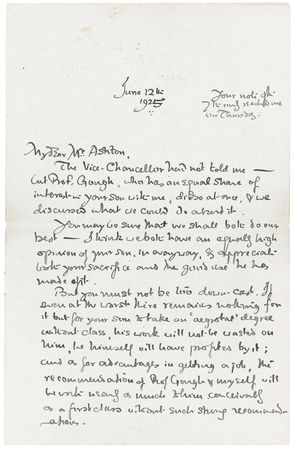 June 12th
1925
Your note of
7th only reached me
on Thursday.
My dear Mr Ashton,
The Vice-Chancellor had not told me —
but Prof. Gough, who has an equal share of
interest in your son with me, did so at once, & we
discussed what we could do about it.
You may be sure that we shall both do our
best — I think we both have an equally high
opinion of your son, in every way, & appreciate
both your sacrifice and the good use he has
made of it.
But you must not be too down-cast. If
even at the worst there remains nothing for
it but for your son to take an 'aegrotat' degree
without class, his work will not be wasted on
him, he himself will have profited by it;
and as for advantage in getting a job, the
recommendation of Prof Gough & myself will
be worth nearly as much to him conceivably
as a first class without such strong recommend-
ations.